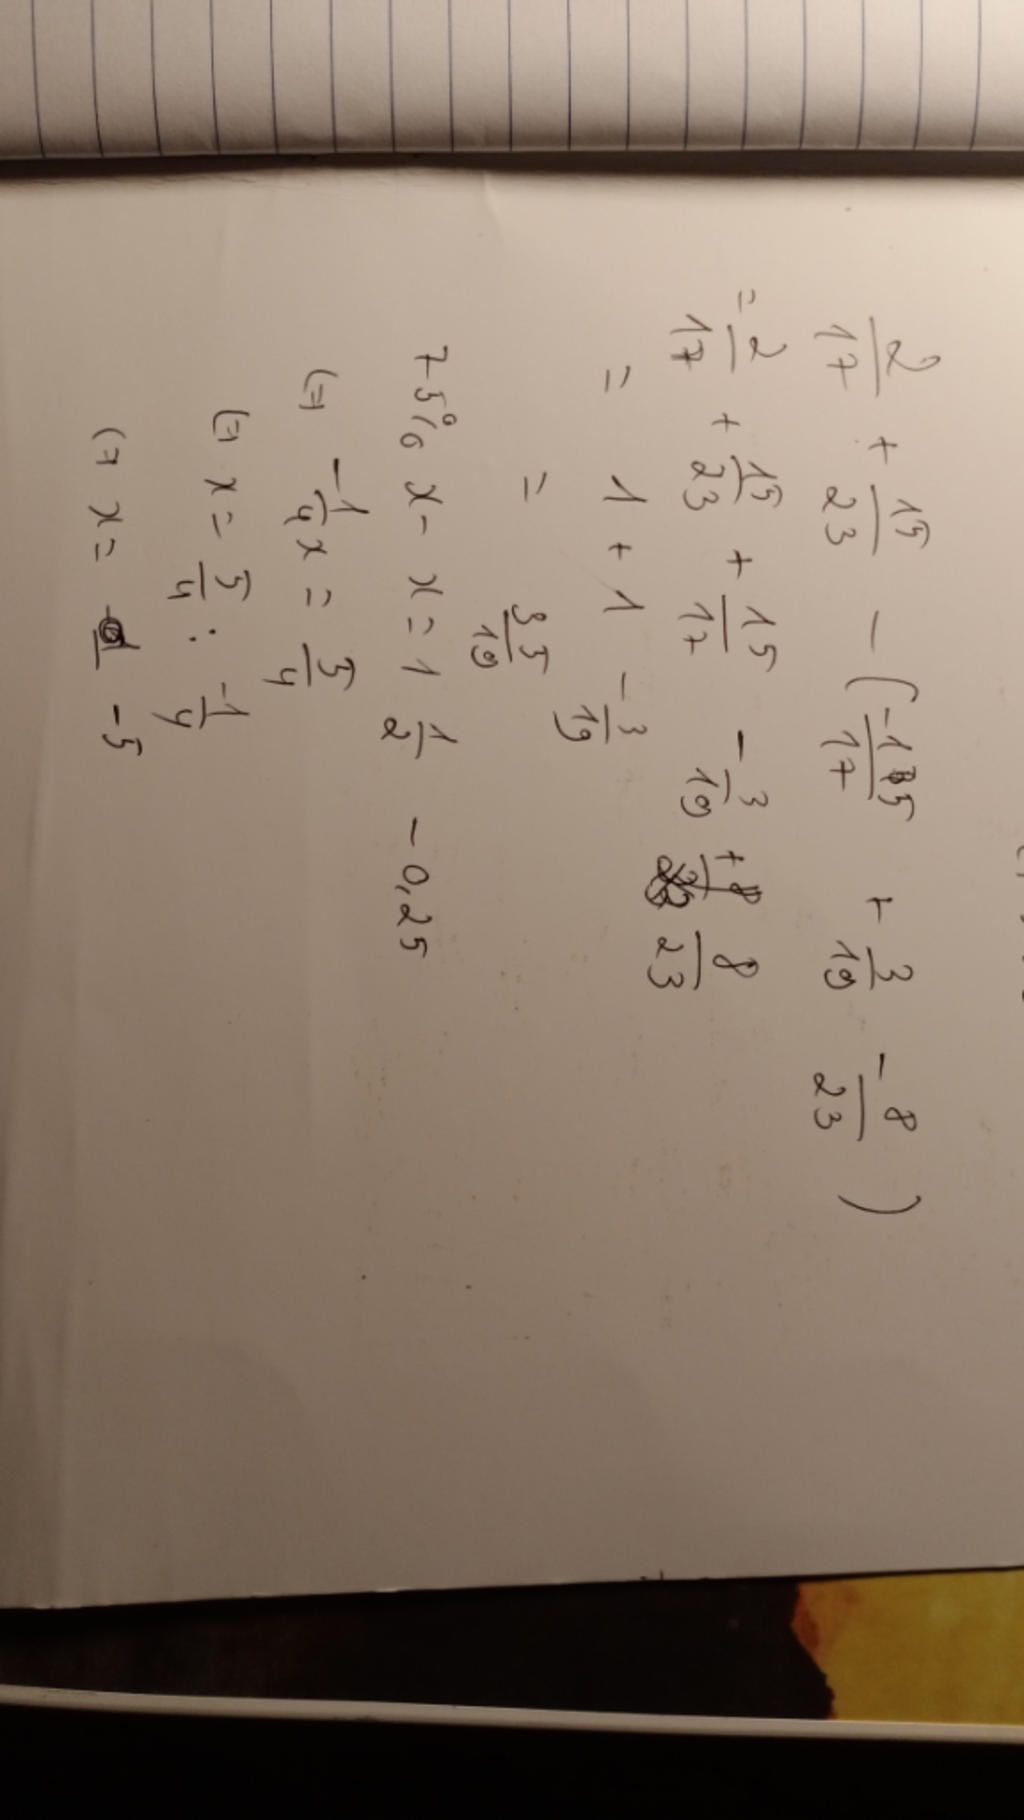 2/17 + 15/23 - (-15/17 + 3/19 - 8/23)
= 2/17 + 15/23 + 15/17 - 3/19 + 8/23
= 1 + 1 - 3/19
= 35/19
75% x - x = 1 1/2 - 0,25
(=) -1/4 x = 5/4
(=) x = 5/4 : -1/4
(=) x = -5